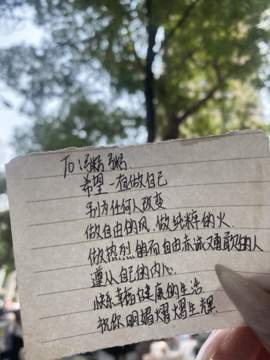 To 粥粥
希望一直做自己
别为任何人改变
做自由的风 做纯粹的火
做热烈 自由赤诚又勇敢的人
遵从自己的内心
快乐幸福健康的生活
祝你明媚熠熠生辉